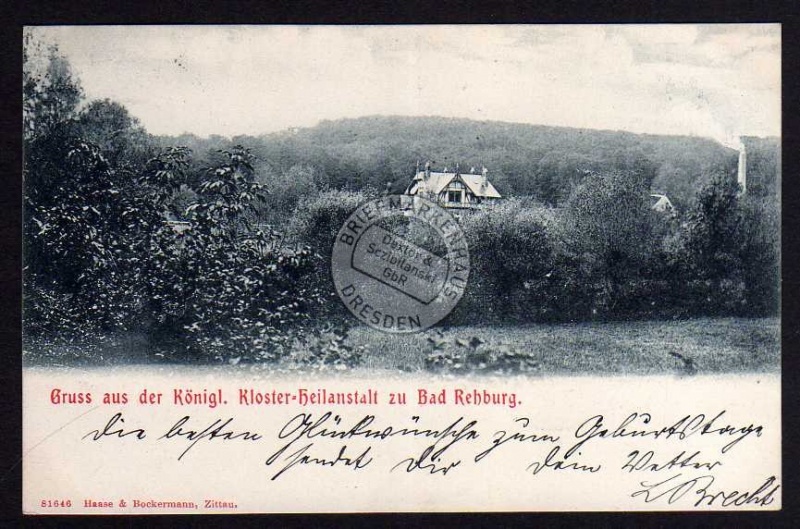 BRIEFMARKENHAUS
Dexter &
Sezibilanski
GbR
DRESDEN
Gruss aus der Königl. Kloster-Heilanstalt zu Bad Rehburg.
die besten Glückwünsche zum Geburtstage
sendet Dir dein Vetter
L Brecht
81646 Haase & Bockermann, Zittau.